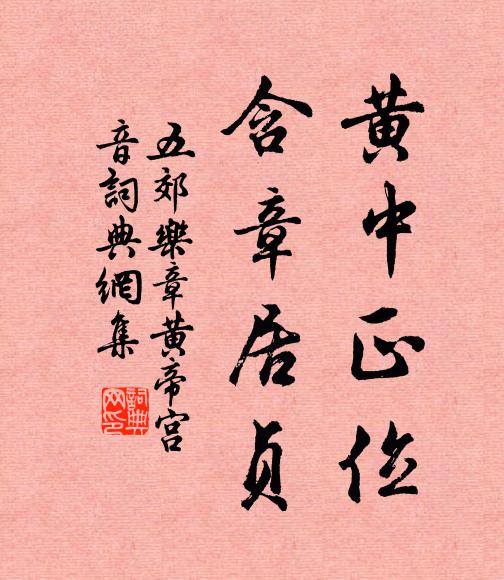 黄中正位
含章居貞
五郊樂章黄帝宫
音詞典網集
詞典网印